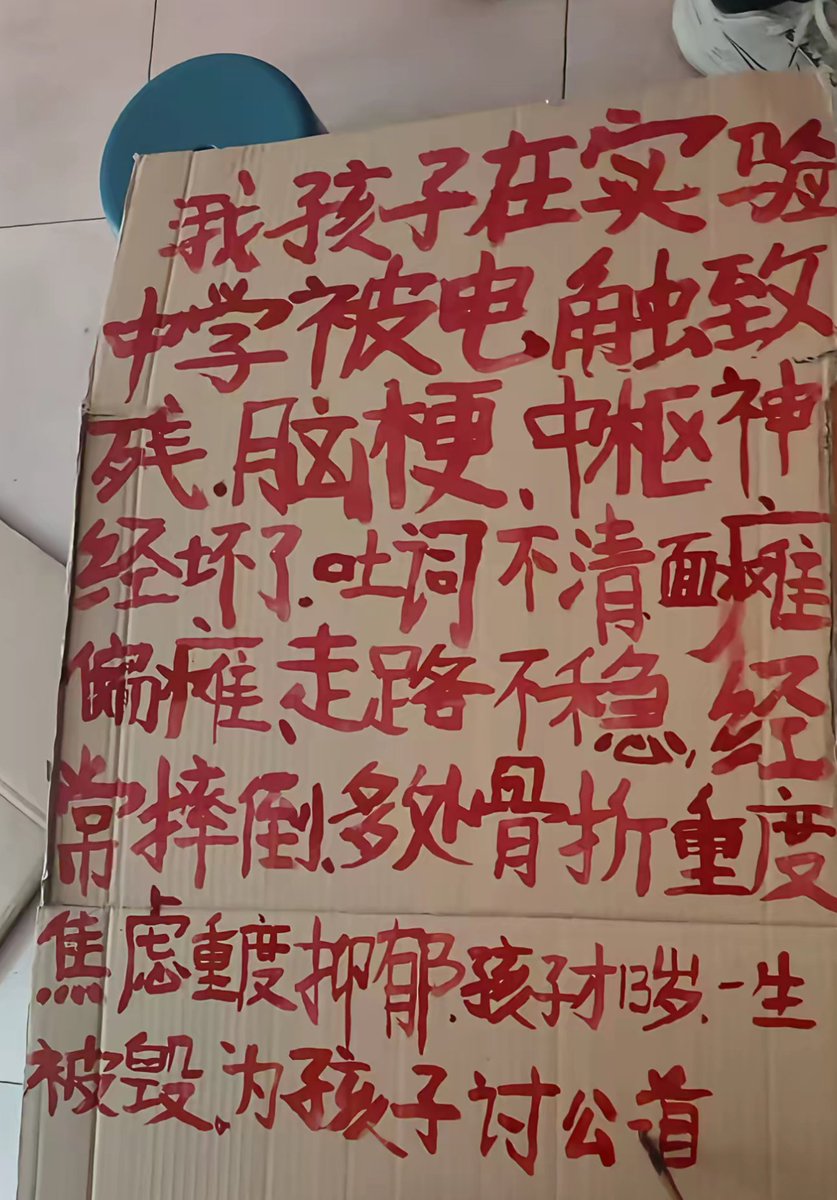 我孩子在实验
中学被电.触致
残.脑梗.中枢神
经坏了.吐词不清.面瘫
偏瘫、走路不稳,经
常摔倒.多处骨折重度
焦虑重度抑郁.孩子才13岁.一生
被毁.为孩子讨公道